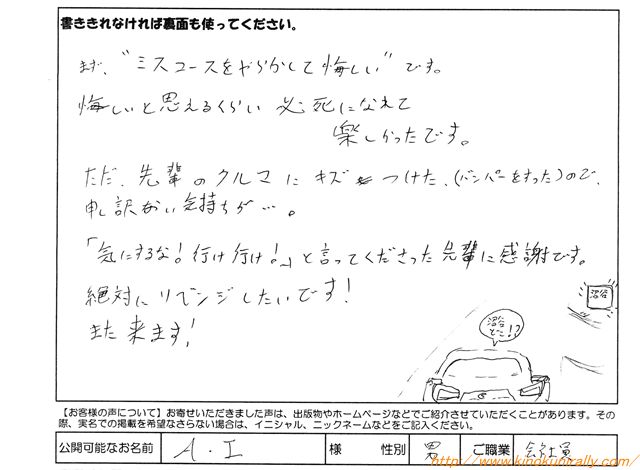 書ききれなければ裏面も使ってください。
まず、"ミスコースをやらかして悔しい"です。
悔しいと思えるくらい必死になえて
楽しかったです。
ただ、先輩のクルマにキズつけた、(バンパーをすった)ので、
申し訳ない気持ちが…。
「気にするな!行け行け!」と言ってくださった先輩に感謝です。
絶対にリベンジしたいです!
また来ます!
沼谷
沼谷どこ!?
【お客様の声について】お寄せいただきました声は、出版物やホームページなどでご紹介させていただくことがあります。その
際、実名での掲載を希望なさらない場合は、イニシャル、ニックネームなどをご記入ください。
公開可能なお名前 A・I 様 性別 男 ご職業 会社員
http://www.kinokunirally.com/